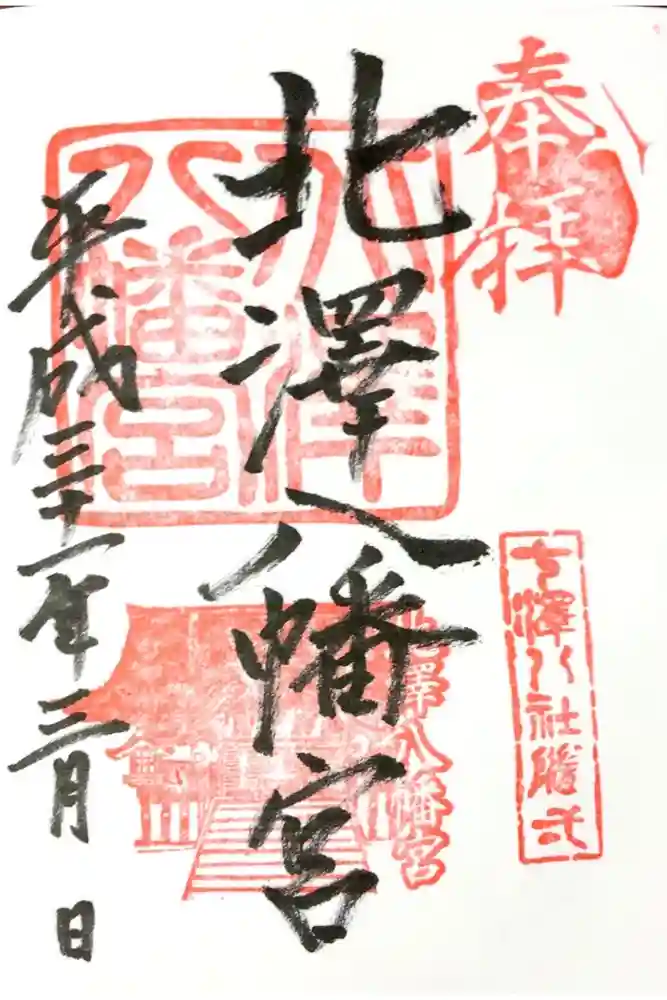 奉拝
七澤八社随弌
北澤八幡宮
北澤八幡宮
北澤
八幡宮
平成三十一年三月 日